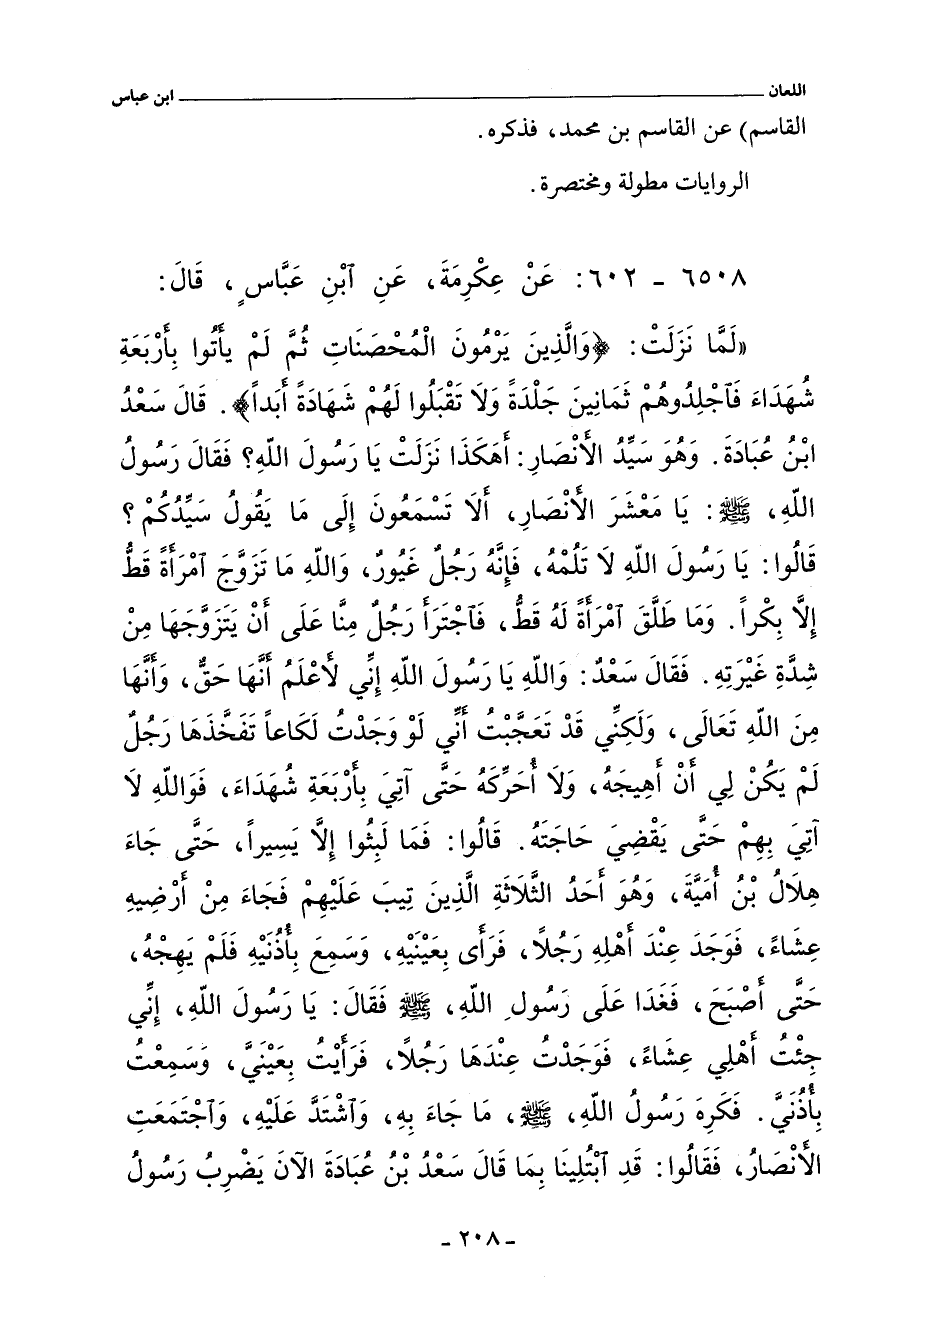 اللعان ابن عباس
القاسم) عن القاسم بن محمد، فذكره.
الروايات مطولة ومختصرة.
٦٥٠٨ - ٦٠٢: عَنْ عِكْرِمَةَ، عَنِ ٱبْنِ عَبَّاسٍ، قَالَ:
«لَمَّا نَزَلَتْ: ﴿وَالَّذِينَ يَرْمُونَ الْمُحْصَنَاتِ ثُمَّ لَمْ يأْتُوا بِأَرْبَعَةِ
شُهَدَاءَ فَٱجْلِدُوهُمْ ثَمَانِينَ جَلْدَةً وَلَا تَقْبَلُوا لَهُمْ شَهَادَةً أَبَداً﴾. قَالَ سَعْدُ
ابْنُ عُبَادَةَ. وَهُوَ سَيِّدُ الأَنْصَارِ: أَهَكَذَا نَزَلَتْ يَا رَسُولَ اللّهِ؟ فَقَالَ رَسُولُ
اللّهِ، ﷺ: يَا مَعْشَرَ الأَنْصَارِ، أَلَا تَسْمَعُونَ إِلَى مَا يَقُولُ سَيِّدُكُمْ؟
قَالُوا: يَا رَسُولَ اللّهِ لَا تَلُمْهُ، فَإِنَّهُ رَجُلٌ غَيُورٌ، وَاللّهِ مَا تَزَوَّجَ ٱمْرَأَةً قَطُّ
إِلَّا بِكْراً. وَمَا طَلَّقَ ٱمْرَأَةً لَهُ قَطُّ، فَٱجْتَرَأَ رَجُلٌ مِنَّا عَلَى أَنْ يَتَزَوَّجَهَا مِنْ
شِدَّةِ غَيْرَتِهِ. فَقَالَ سَعْدٌ: وَاللّهِ يَا رَسُولَ اللّهِ إِنِّي لأَعْلَمُ أَنَّهَا حَقٌّ، وَأَنَّهَا
مِنَ اللّهِ تَعَالَى، وَلَكِنِّي قَدْ تَعَجَّبْتُ أَنِّي لَوْ وَجَدْتُ لَكَاعاً تَفَخَّذَهَا رَجُلٌ
لَمْ يَكُنْ لِي أَنْ أَهِيجَهُ، وَلَا أُحَرِّكَهُ حَتَّى آتِيَ بِأَرْبَعَةِ شُهَدَاءَ، فَوَاللّهِ لَا
آتِيَ بِهِمْ حَتَّى يَقْضِيَ حَاجَتَهُ. قَالُوا: فَمَا لَبِثُوا إِلَّا يَسِيراً، حَتَّى جَاءَ
هِلَالُ بْنُ أُمَيَّةَ، وَهُوَ أَحَدُ الثَّلَاثَةِ الَّذِينَ تِيبَ عَلَيْهِمْ فَجَاءَ مِنْ أَرْضِيهِ
عِشَاءً، فَوَجَدَ عِنْدَ أَهْلِهِ رَجُلًا، فَرَأَى بِعَيْنَيْهِ، وَسَمِعَ بِأُذُنَيْهِ فَلَمْ يَهِجْهُ،
حَتَّى أَصْبَحَ، فَغَدَا عَلَى رَسُولِ اللّهِ، ﷺ فَقَالَ: يَا رَسُولَ اللّهِ، إِنِّي
جِئْتُ أَهْلِي عِشَاءً، فَوَجَدْتُ عِنْدَهَا رَجُلًا، فَرَأَيْتُ بِعَيْنَيَّ، وَسَمِعْتُ
بِأُذُنَيَّ. فَكَرِهَ رَسُولُ اللّهِ، ﷺ، مَا جَاءَ بِهِ، وَٱشْتَدَّ عَلَيْهِ، وَٱجْتَمَعَتِ
الأَنْصَارُ، فَقَالُوا: قَدِ ٱبْتُلِينَا بِمَا قَالَ سَعْدُ بْنُ عُبَادَةَ الآنَ يَضْرِبُ رَسُولُ
- ٢٠٨ -